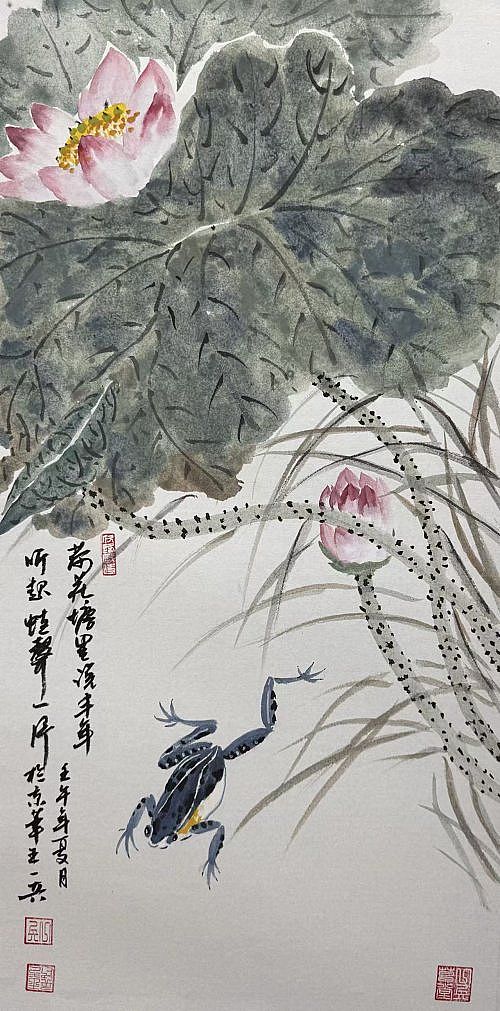 荷花塘里说丰年
听起蛙聲一片
壬午年夏月
於京華王一兵